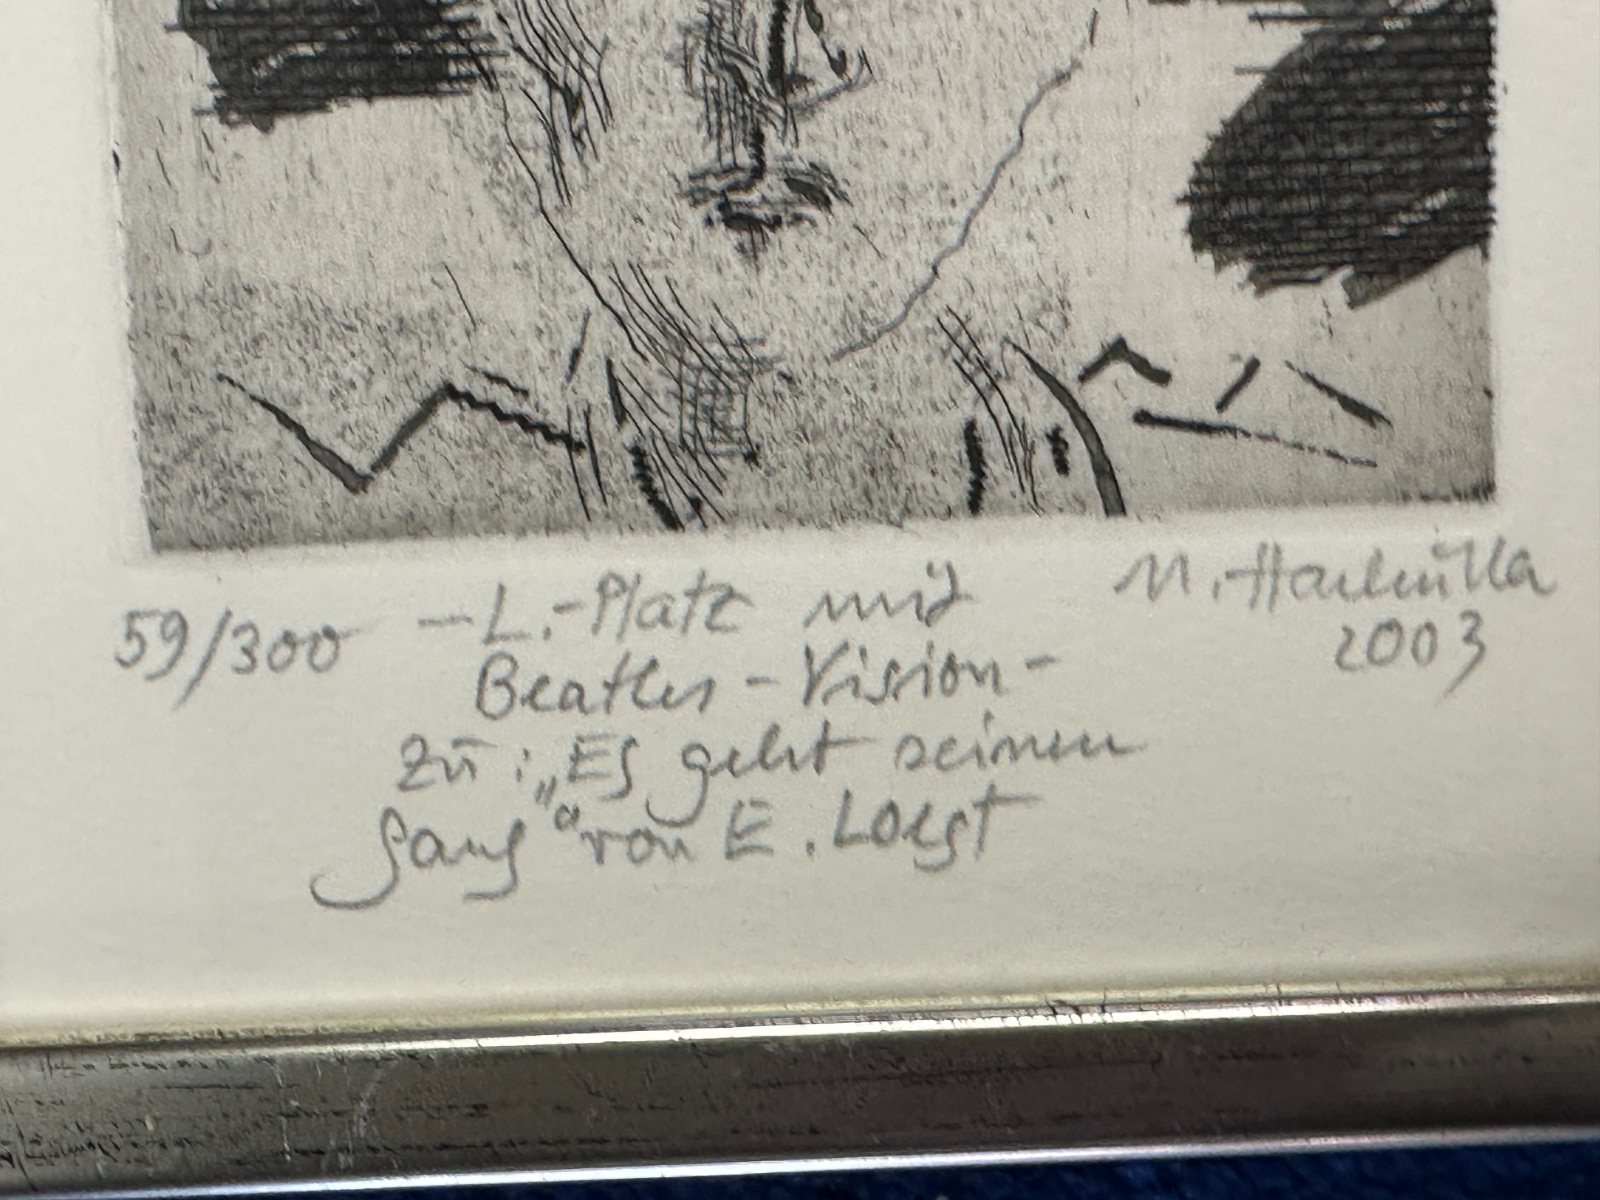 59/300
-L.-Platz mit
Beatles-Vision-
zu: „Es geht seinen
Gang“ von E. Loest
M. Hachulla
2003